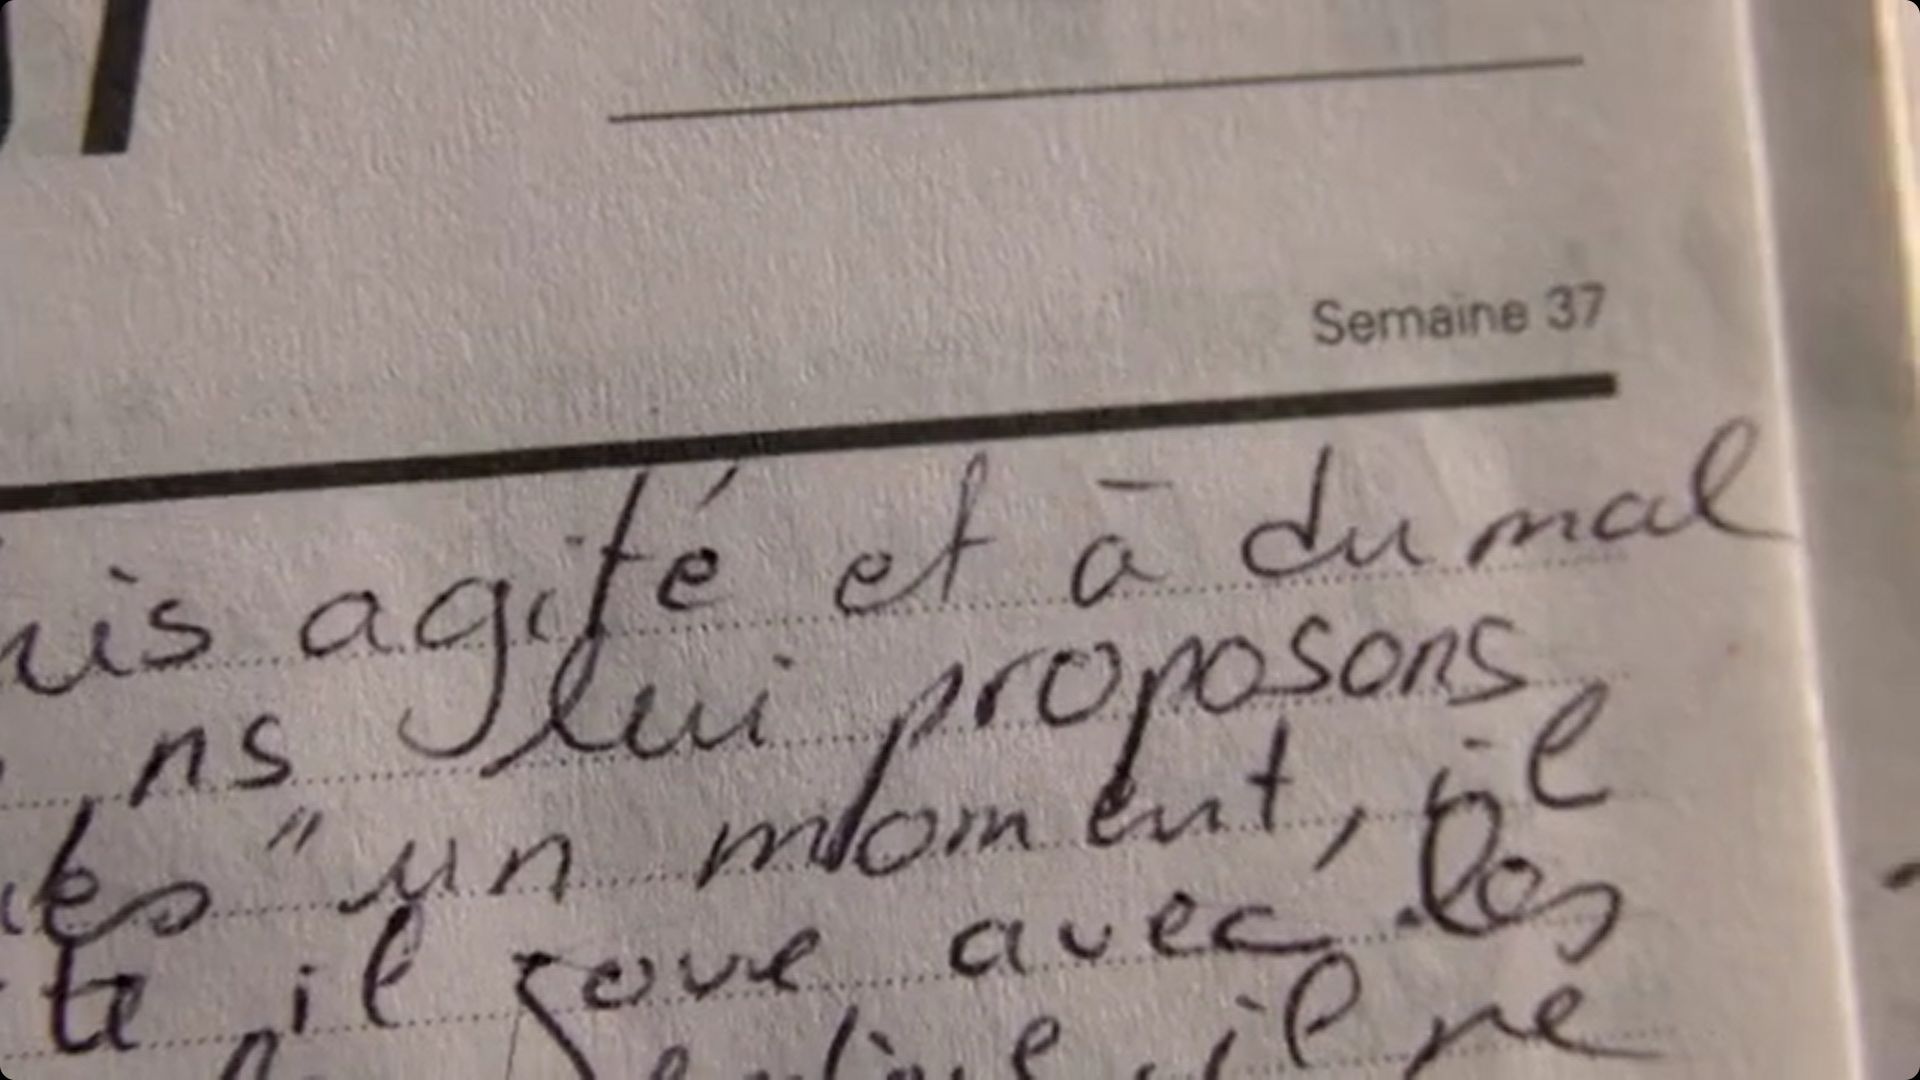 Semaine 37
agité et à du mal
ns lui proposons
" un moment, il
il joue avec les
il ne